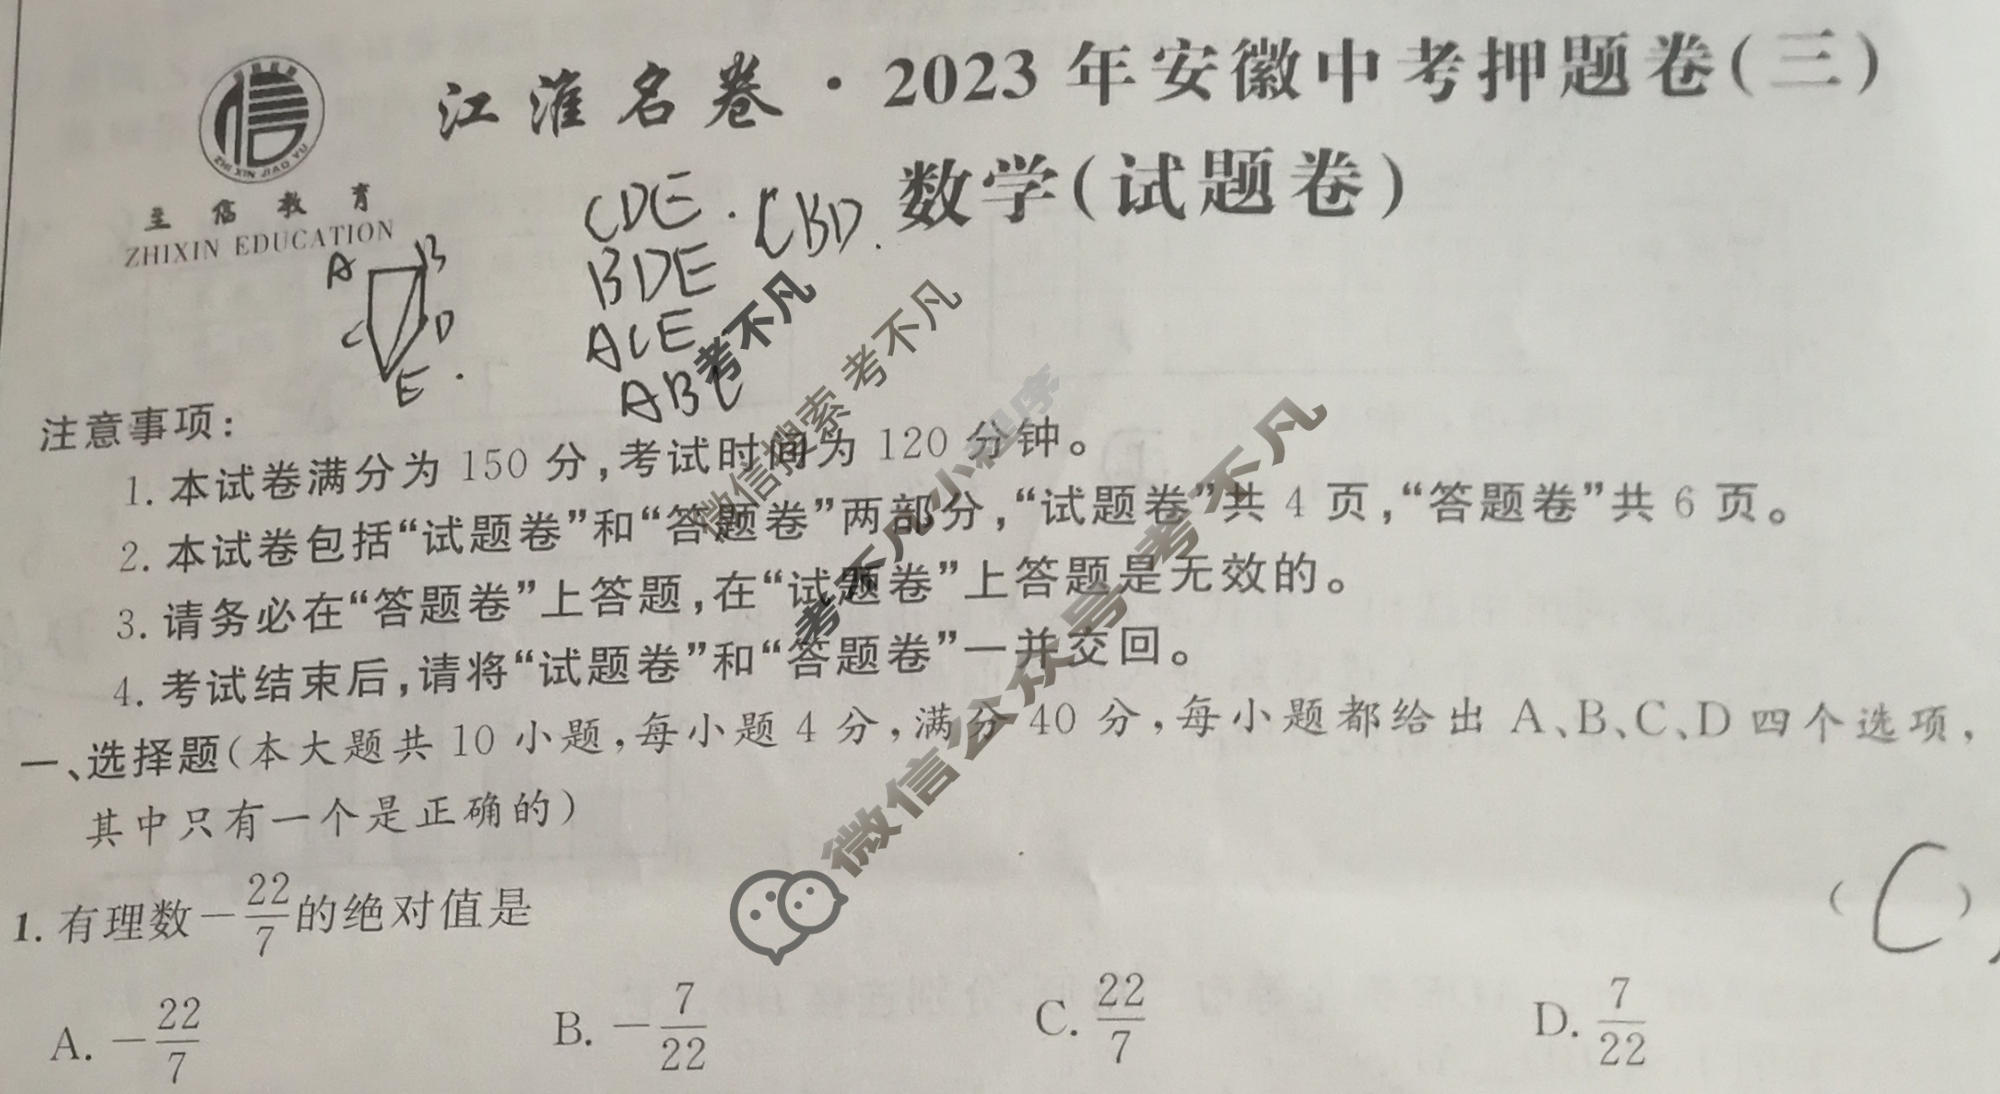 江淮名卷·2023年安徽中考押题卷(三)
数学(试题卷)
ZHI XIN JIAO YU
至信教育
ZHIXIN EDUCATION
A B
C D
E
CDE. CBD.
BDE
ACE
ABC
考不凡
微信搜索 考不凡
考不凡小程序
微信公众号 考不凡
注意事项:
1. 本试卷满分为 150 分,考试时间为 120 分钟。
2. 本试卷包括“试题卷”和“答题卷”两部分,“试题卷”共 4 页,“答题卷”共 6 页。
3. 请务必在“答题卷”上答题,在“试题卷”上答题是无效的。
4. 考试结束后,请将“试题卷”和“答题卷”一并交回。
一、选择题(本大题共 10 小题,每小题 4 分,满分 40 分,每小题都给出 A、B、C、D 四个选项,
其中只有一个是正确的)
1. 有理数 -22/7 的绝对值是 ( C )
A. -22/7 B. -7/22 C. 22/7 D. 7/22